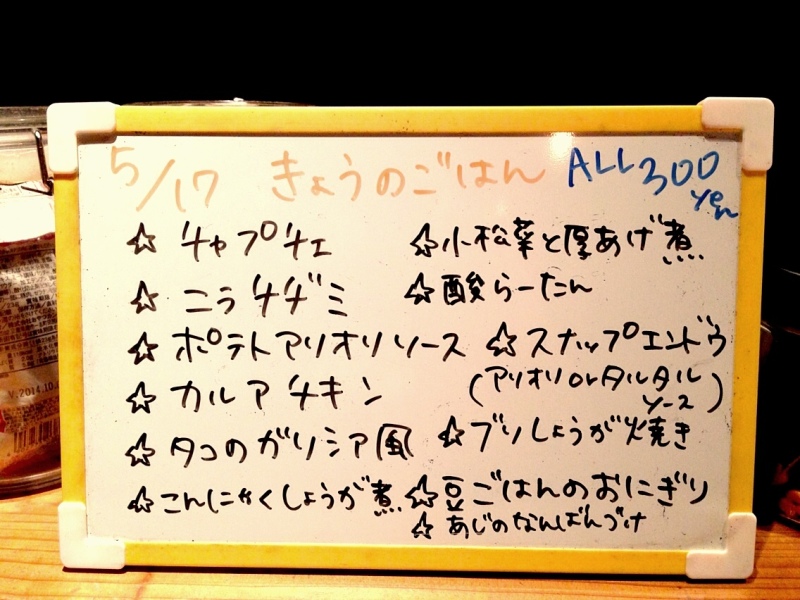 5/17 きょうのごはん ALL 300 yen
☆ チャプチェ
☆ ニラチヂミ
☆ ポテトアリオリソース
☆ カルアチキン
☆ タコのガリシア風
☆ こんにゃくしょうが煮
☆ 小松菜と厚あげ煮
☆ 酸らーたん
☆ スナップエンドウ
(アリオリorタルタル
ソース)
☆ ブリしょうが焼き
☆ 豆ごはんのおにぎり
☆ あじのなんばんづけ
V.2014.10